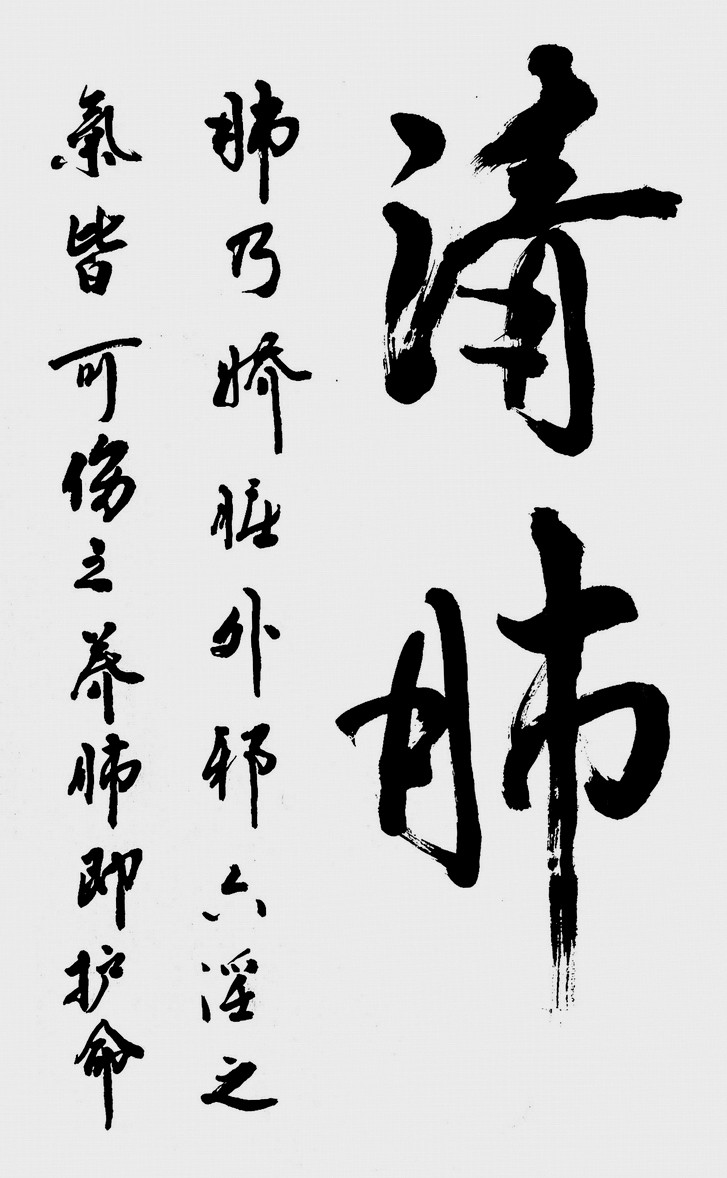 清肺
肺乃娇脏外邪六淫之
氣皆可伤之养肺即护命